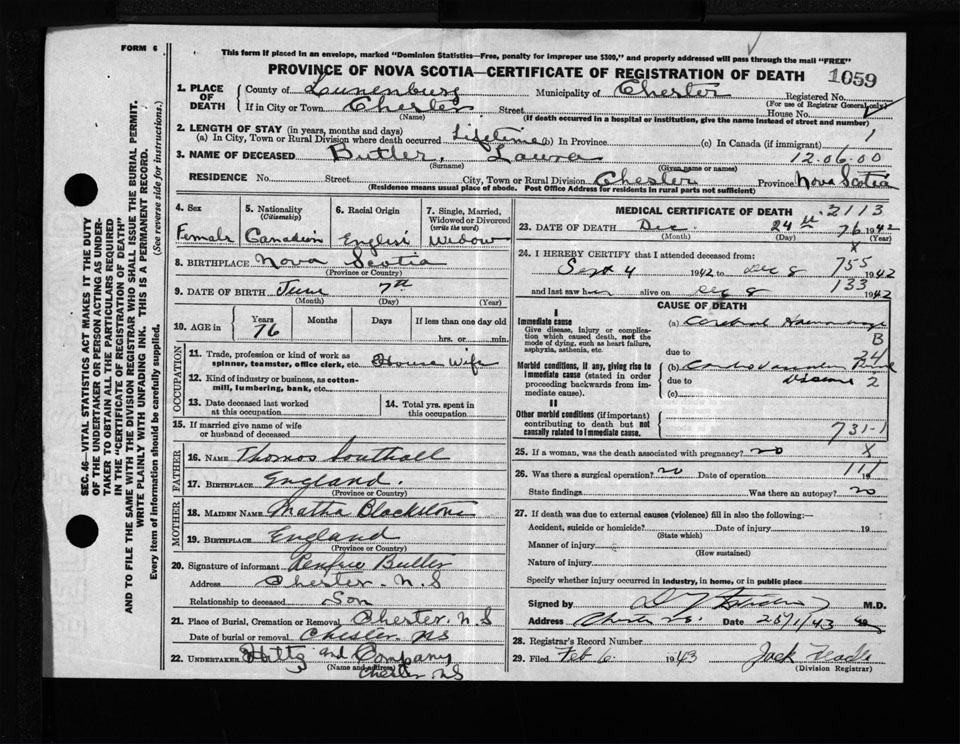 FORM 6
This form if placed in an envelope, marked "Dominion Statistics—Free, penalty for improper use $300," and properly addressed will pass through the mail "FREE"
PROVINCE OF NOVA SCOTIA—CERTIFICATE OF REGISTRATION OF DEATH
1059
1. PLACE OF DEATH
County of Lunenburg Municipality of Chester Registered No.
(For use of Registrar General only)
If in City or Town Chester Street House No.
(Name) (If death occurred in a hospital or institution, give the name instead of street and number)
2. LENGTH OF STAY (in years, months and days)
(a) In City, Town or Rural Division where death occurred Lifetime (b) In Province (c) In Canada (if immigrant) 1
3. NAME OF DECEASED Butler, Laura 12.06.00
(Surname) (Given name or names)
RESIDENCE No. Street City, Town or Rural Division Chester Province Nova Scotia
(Residence means usual place of abode. Post Office Address for residents in rural parts not sufficient)
4. Sex
Female
5. Nationality (Citizenship)
Canadian
6. Racial Origin
English
7. Single, Married, Widowed or Divorced (write the word)
Widow
8. BIRTHPLACE Nova Scotia
(Province or Country)
9. DATE OF BIRTH June 7th
(Month) (Day) (Year)
10. AGE in Years Months Days If less than one day old
76 hrs. or min.
OCCUPATION
11. Trade, profession or kind of work as spinner, teamster, office clerk, etc. House Wife
12. Kind of industry or business, as cotton-mill, lumbering, bank, etc.
13. Date deceased last worked at this occupation
14. Total yrs. spent in this occupation
15. If married give name of wife or husband of deceased
FATHER
16. Name Thomas Southall
17. BIRTHPLACE England.
(Province or Country)
MOTHER
18. MAIDEN NAME Matha Blackstone
19. BIRTHPLACE England
(Province or Country)
20. Signature of informant Butler
Address Chester. N.S
Relationship to deceased Son
21. Place of Burial, Cremation or Removal Chester. N.S
Date of burial or removal Chester NS
22. UNDERTAKER Hiltz and Company
(Name and address) Chester NS
MEDICAL CERTIFICATE OF DEATH 2113
23. DATE OF DEATH Dec. 24th 76 1942
(Month) (Day) (Year)
X
24. I HEREBY CERTIFY that I attended deceased from: 755
Sept 4 1942 to Dec 8 1942
and last saw her alive on Dec 8 133 1942
CAUSE OF DEATH
I
Immediate cause
Give disease, injury or complication which caused death, not the mode of dying, such as heart failure, asphyxia, asthenia, etc.
(a) Cerebral Hemorrhage
B
due to 24
Morbid conditions, if any, giving rise to immediate cause (stated in order proceeding backwards from immediate cause).
(b) Cardio Vascular Renal
due to Disease 2
(c)
II
Other morbid conditions (if important) contributing to death but not causally related to immediate cause.
731-1
25. If a woman, was the death associated with pregnancy? no X
26. Was there a surgical operation? no Date of operation 111
State findings Was there an autopsy? no
27. If death was due to external causes (violence) fill in also the following:—
Accident, suicide or homicide? Date of injury 19
(State which)
Manner of injury
(How sustained)
Nature of injury
Specify whether injury occurred in industry, in home, or in public place
Signed by M.D.
Address Chester N.S. Date 25/1/43
28. Registrar's Record Number
29. Filed Feb 6 1943 Jack
(Division Registrar)
SEC. 46—VITAL STATISTICS ACT MAKES IT THE DUTY
OF THE UNDERTAKER OR PERSON ACTING AS UNDER-
TAKER TO OBTAIN ALL THE PARTICULARS REQUIRED
IN THE "CERTIFICATE OF REGISTRATION OF DEATH"
AND TO FILE THE SAME WITH THE DIVISION REGISTRAR WHO SHALL ISSUE THE BURIAL PERMIT.
WRITE PLAINLY WITH UNFADING INK. THIS IS A PERMANENT RECORD.
Every item of information should be carefully supplied. (See reverse side for instructions.)